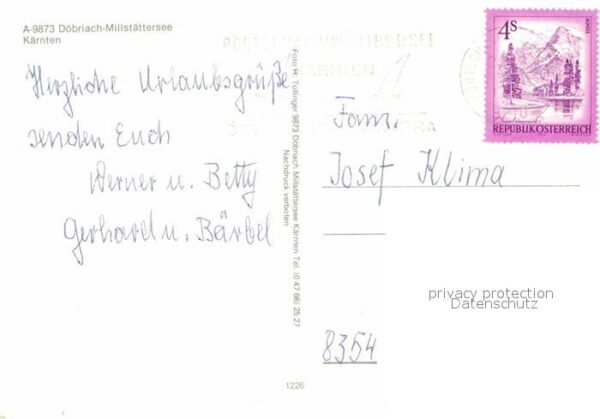 A-9873 Döbriach-Millstättersee
Kärnten
Herzliche Urlaubsgrüße
senden Euch
Werner u. Betty
Gerhard u. Bärbel
Foto H. Tollinger 9873 Döbriach Millstättersee Kärnten Tel. (0 47 66) 25 27
Nachdruck verboten
1226
WÖRTHERSEE
KÄRNTEN
4S
REPUBLIK ÖSTERREICH
Fam.
Josef Klima
privacy protection
Datenschutz
8354